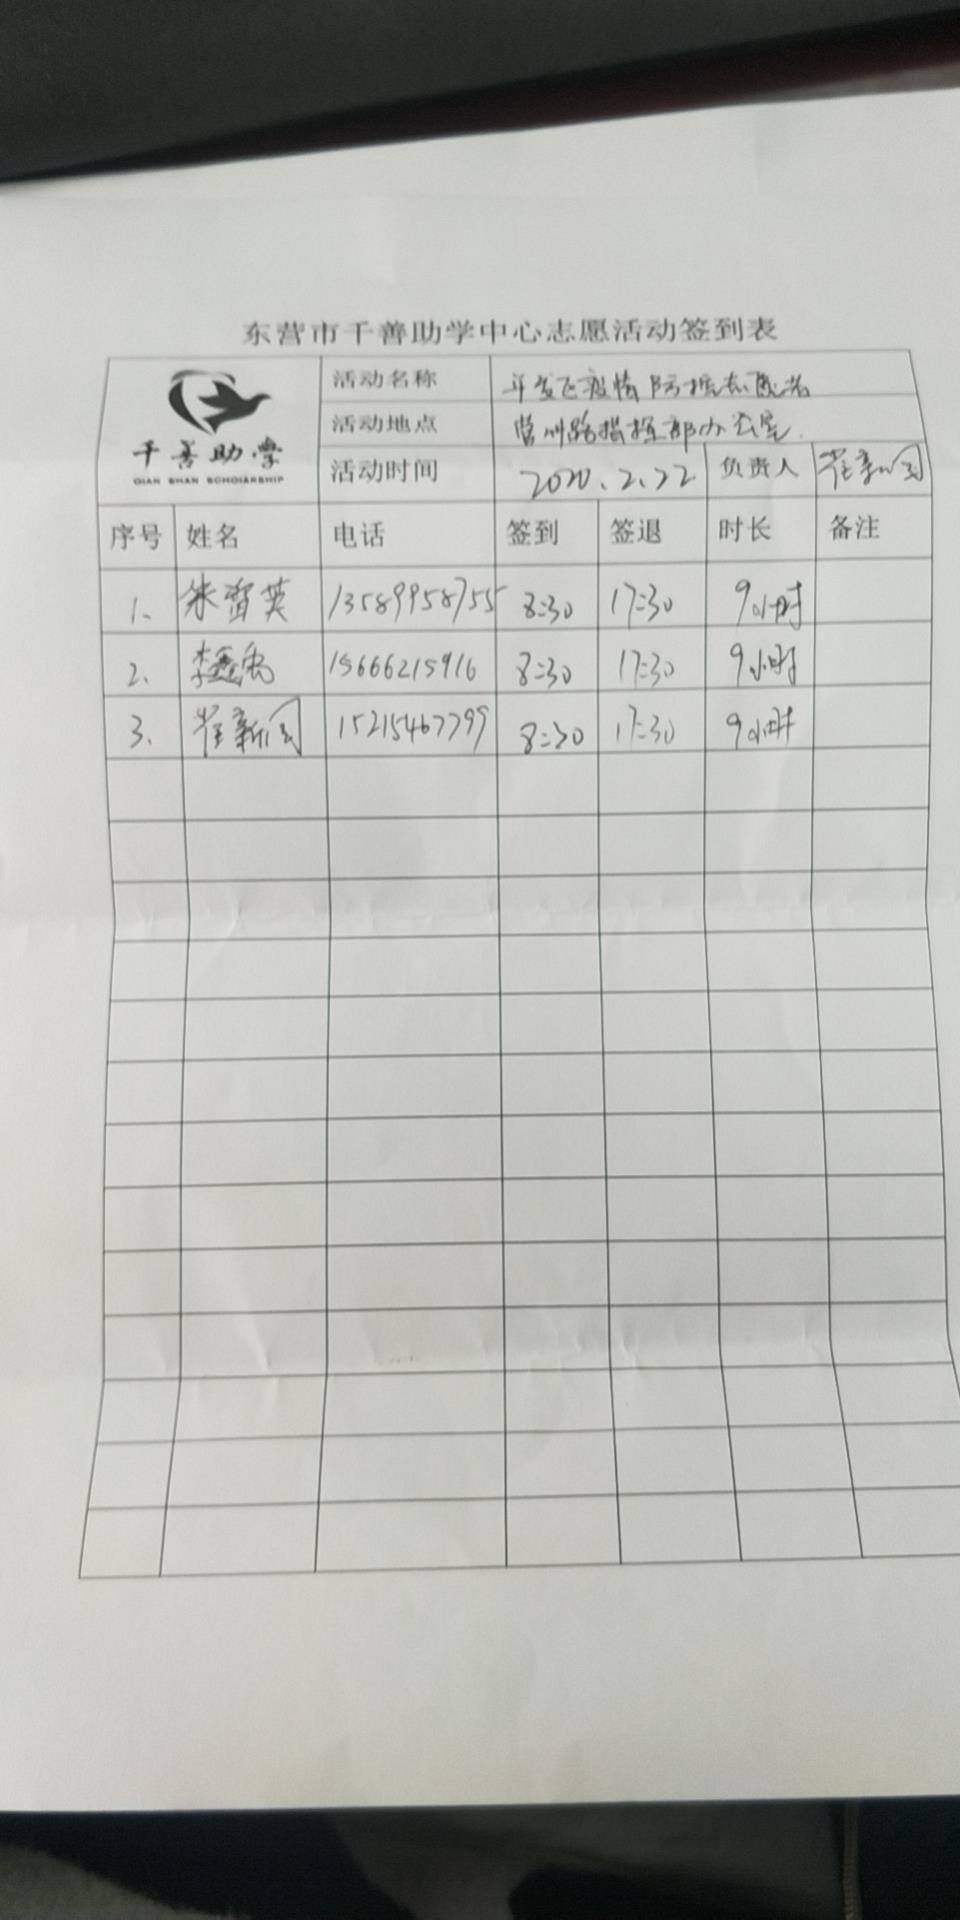 东营市千善助学中心志愿活动签到表
千善助学
QIAN SHAN SCHOLARSHIP
活动名称 开发区疫情防控志愿者
活动地点 营州路指挥部办公室
活动时间 2020.2.22 负责人 崔新
序号 姓名 电话 签到 签退 时长 备注
1、 朱 英 13589958755 8:30 17:30 9小时
2、 李 15666215916 8:30 17:30 9小时
3、 崔新 15215467799 8:30 17:30 9小时